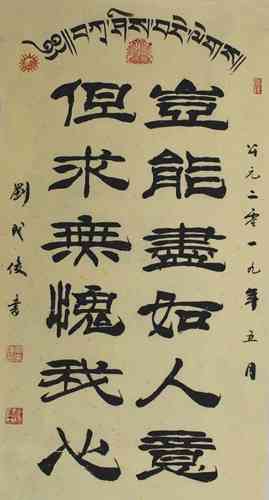 ༄༅།།བཀྲ་ཤིས་བདེ་ལེགས།
公元二零一九年五月
豈能盡如人意
但求無愧我心
劉成俊書